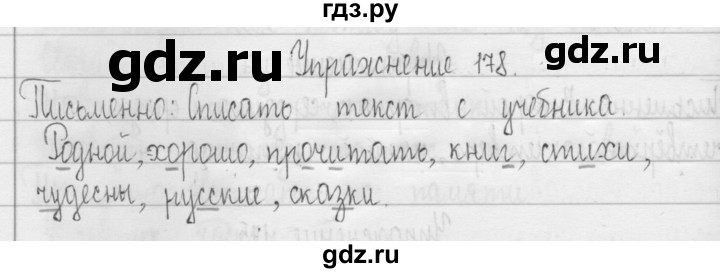 гдз.ру
Упражнение 178.
gdz.ru gdz.ru
Письменно: Списать текст с учебника
Родной, хорошо, прочитать, книг, стихи,
чудесны, русские, сказки.
gdz.ru